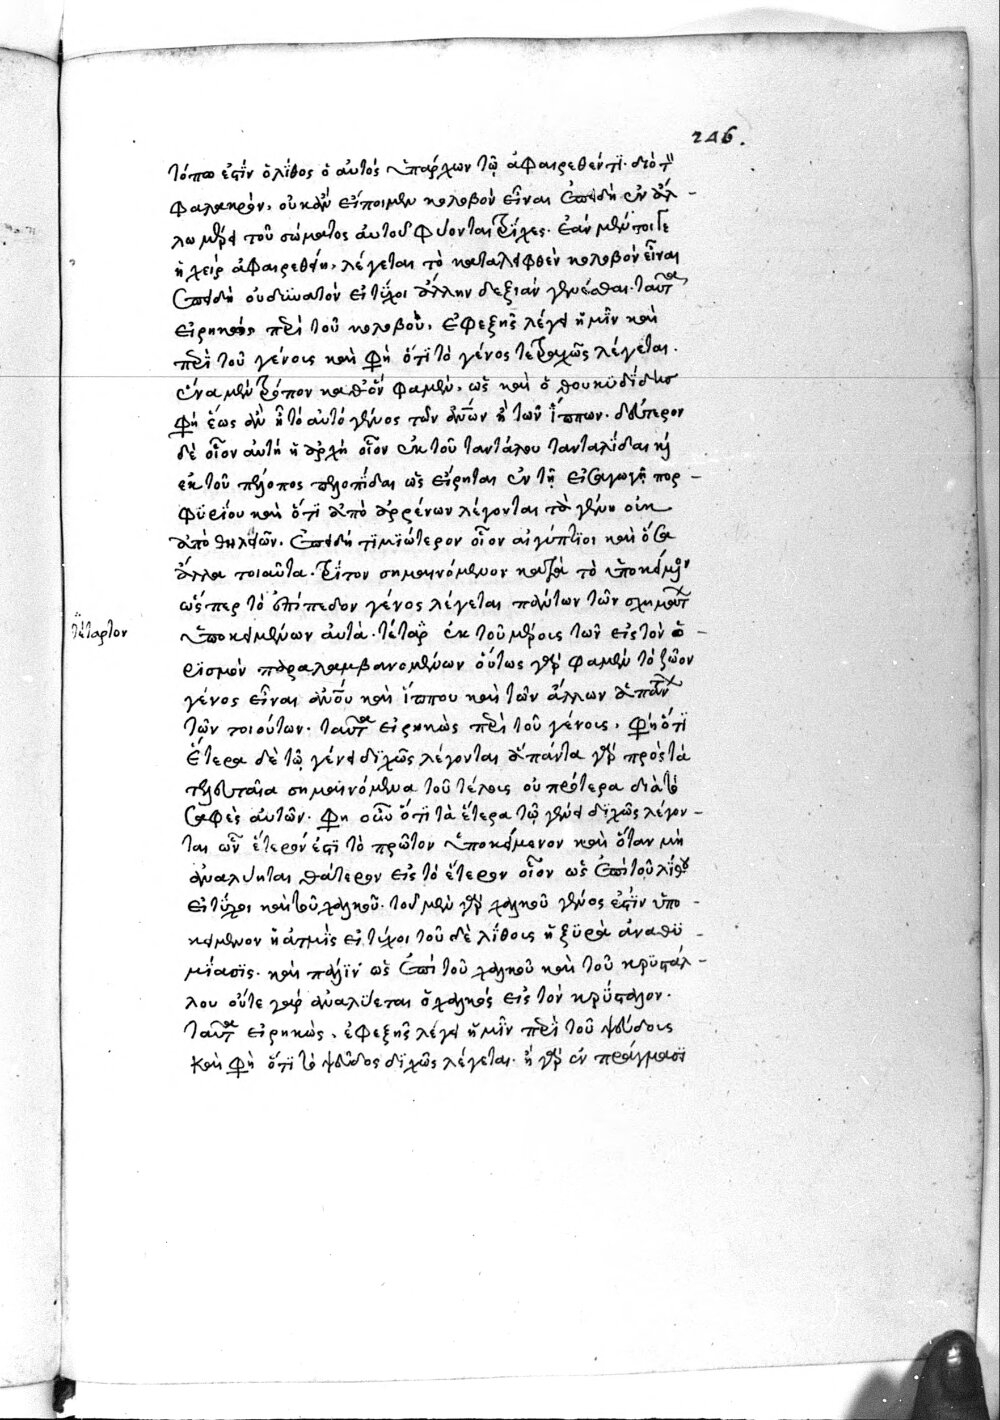 246.
τόπω ἐστὶν ὁ λίθος ὁ αὐτὸς ὑπάρχων τῷ ἀφαιρεθέντι· διὸ τὸν
φαλακρὸν, οὐκ ἂν εἴποιμεν κολοβὸν εἶναι ἐπειδὴ ἐν ἄλ-
λω μέρει τοῦ σώματος αὐτοῦ φύονται τρίχες. ἐὰν μέντοιγε
ἡ χεὶρ ἀφαιρεθείη, λέγεται τὸ καταλειφθὲν κολοβὸν εἶναι
ἐπειδὴ οὐ δυνατὸν εἰ τύχοι ἄλλην δεξιὰν γενέσθαι. ταῦτα
εἰρηκὼς περὶ τοῦ κολοβοῦ, ἐφεξῆς λέγει ἡμῖν καὶ
περὶ τοῦ γένους καὶ φησὶ ὅτι τὸ γένος τετραχῶς λέγεται.
ἕνα μὲν τρόπον καθ' ὅν φαμεν, ὡς καὶ ὁ θουκυδίδης
φησὶ ἕως ἂν ἦ τὸ αὐτὸ γένος τῶν ἀνθρώπων ἢ τῶν ἵππων. δεύτερον
δὲ οἷον αὐτὴ ἡ ἀρχὴ οἷον ἐκ τοῦ ταντάλου τανταλίδαι καὶ
ἐκ τοῦ πέλοπος πελοπίδαι ὡς εἴρηται ἐν τῇ εἰσαγωγῇ πορ-
φυρίου καὶ ὅτι ἀπὸ ἀρρένων λέγονται τὰ γένη οὐκ
ἀπὸ θηλειῶν. ἐπειδὴ τιμιώτερον οἷον αἰγύπτιοι καὶ ὅσα
ἄλλα τοιαῦτα. τρίτον σημαινόμενον κατὰ τὸ ὑποκείμενον
ὥσπερ τὸ ἐπίπεδον γένος λέγεται πάντων τῶν σχημάτων
τέταρτον
ὑποκειμένων αὐτὰ. τέταρτον ἐκ τοῦ μέρους τῶν εἰς τὸν ὁ-
ρισμὸν παραλαμβανομένων οὕτως γάρ φαμεν τὸ ζῶον
γένος εἶναι ἀνθρώπου καὶ ἵππου καὶ τῶν ἄλλων ἁπάντων
τῶν τοιούτων. ταῦτα εἰρηκὼς περὶ τοῦ γένους, φησὶ ὅτι
ἕτερα δὲ τῷ γένει διχῶς λέγονται ἅπαντα γὰρ πρὸς τὰ
τελευταῖα σημαινόμενα τοῦ τέλους οὐ πρότερα διὰ τὸ
σαφὲς αὐτῶν. φησὶ οὖν ὅτι τὰ ἕτερα τῷ γένει διχῶς λέγον-
ται ὧν ἕτερόν ἐστι τὸ πρῶτον ὑποκείμενον καὶ ὅταν μὴ
ἀναλύηται θάτερον εἰς τὸ ἕτερον οἷον ὡς ἐπὶ τοῦ λίθου
εἰ τύχοι καὶ τοῦ χαλκοῦ. τοῦ μὲν γὰρ χαλκοῦ γένος ἐστὶν ὑπο-
κείμενον ἡ ἀτμὶς εἰ τύχοι τοῦ δὲ λίθους ἡ ξυρὰ ἀναθυ-
μίασις. καὶ πάλιν ὡς ἐπὶ τοῦ χαλκοῦ καὶ τοῦ κρυστάλ-
λου οὔτε γὰρ ἀναλύεται ὁ χαλκὸς εἰς τὸν κρύσταλον.
ταῦτα εἰρηκὼς, ἐφεξῆς λέγει ἡμῖν περὶ τοῦ ψεύδους
καὶ φησὶ ὅτι τὸ ψεῦδος διχῶς λέγεται. ἢ γὰρ ἐν πράγμασι